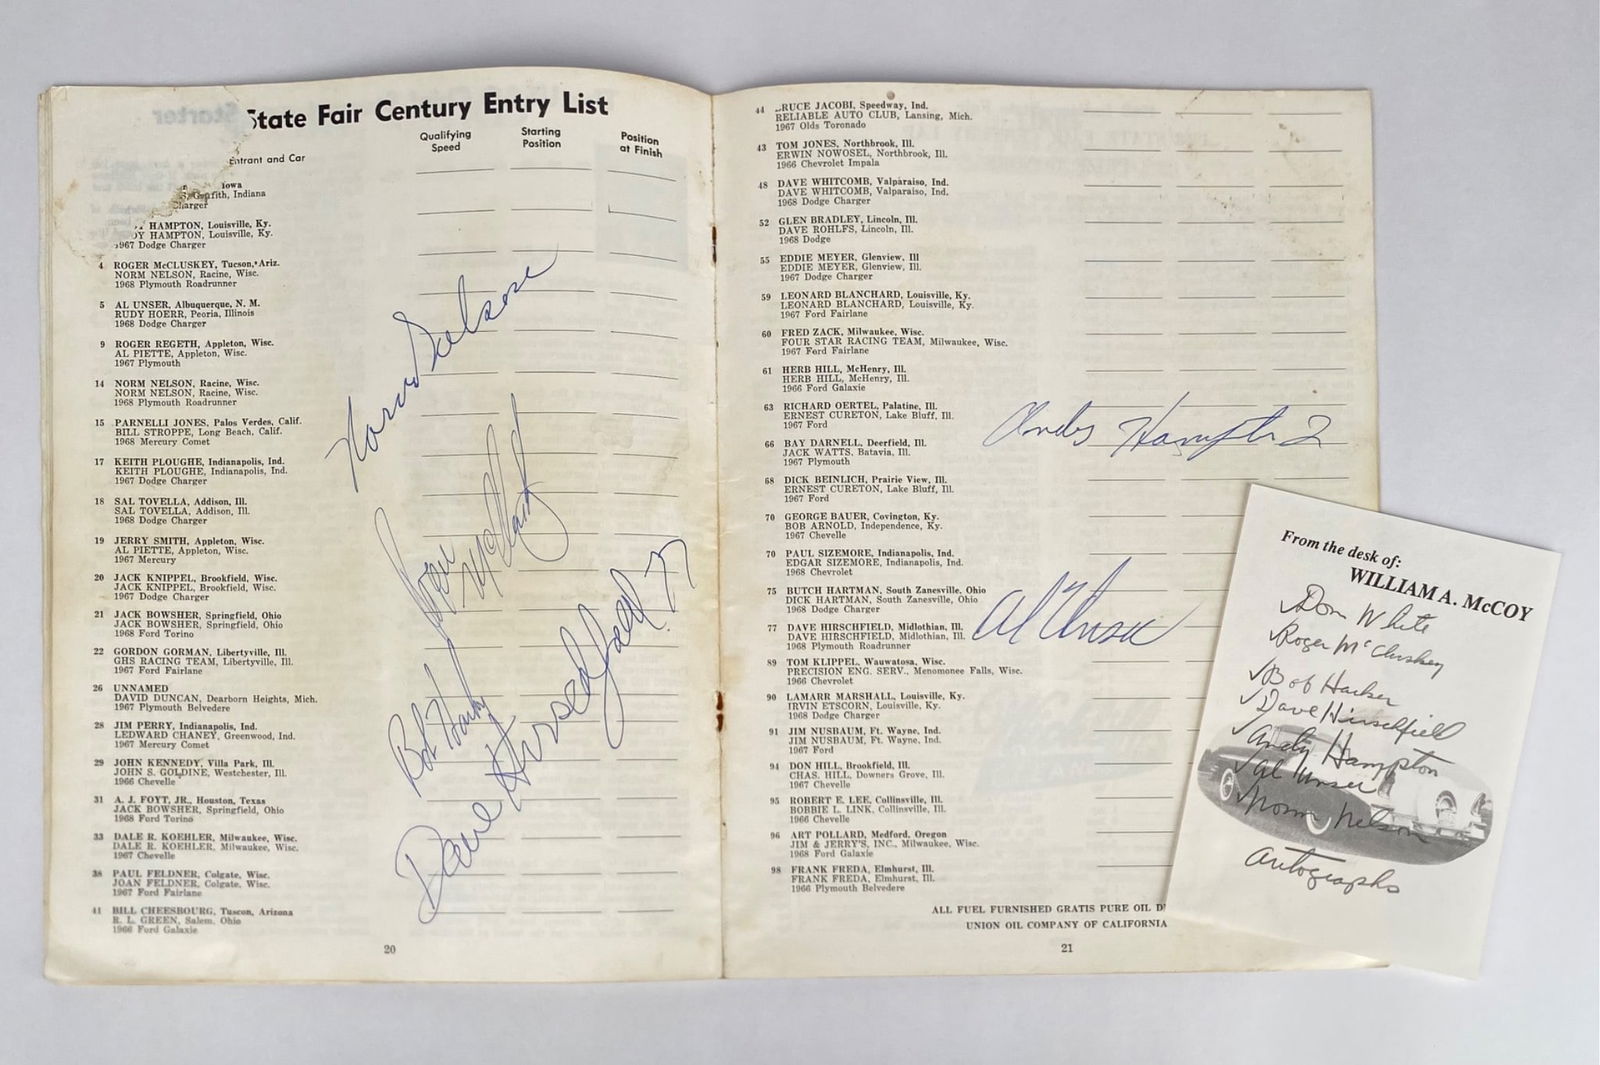 State Fair Century Entry List
Entrant and Car
Qualifying Speed
Starting Position
Position at Finish
Iowa
Griffith, Indiana
Charger
HAMPTON, Louisville, Ky.
DY HAMPTON, Louisville, Ky.
1967 Dodge Charger
4 ROGER McCLUSKEY, Tucson, Ariz.
NORM NELSON, Racine, Wisc.
1968 Plymouth Roadrunner
5 AL UNSER, Albuquerque, N. M.
RUDY HOERR, Peoria, Illinois
1968 Dodge Charger
9 ROGER REGETH, Appleton, Wisc.
AL PIETTE, Appleton, Wisc.
1967 Plymouth
14 NORM NELSON, Racine, Wisc.
NORM NELSON, Racine, Wisc.
1968 Plymouth Roadrunner
15 PARNELLI JONES, Palos Verdes, Calif.
BILL STROPPE, Long Beach, Calif.
1968 Mercury Comet
17 KEITH PLOUGHE, Indianapolis, Ind.
KEITH PLOUGHE, Indianapolis, Ind.
1967 Dodge Charger
18 SAL TOVELLA, Addison, Ill.
SAL TOVELLA, Addison, Ill.
1968 Dodge Charger
19 JERRY SMITH, Appleton, Wisc.
AL PIETTE, Appleton, Wisc.
1967 Mercury
20 JACK KNIPPEL, Brookfield, Wisc.
JACK KNIPPEL, Brookfield, Wisc.
1967 Dodge Charger
21 JACK BOWSHER, Springfield, Ohio
JACK BOWSHER, Springfield, Ohio
1968 Ford Torino
22 GORDON GORMAN, Libertyville, Ill.
GHS RACING TEAM, Libertyville, Ill.
1967 Ford Fairlane
26 UNNAMED
DAVID DUNCAN, Dearborn Heights, Mich.
1967 Plymouth Belvedere
28 JIM PERRY, Indianapolis, Ind.
LEDWARD CHANEY, Greenwood, Ind.
1967 Mercury Comet
29 JOHN KENNEDY, Villa Park, Ill.
JOHN S. GOLDINE, Westchester, Ill.
1966 Chevelle
31 A. J. FOYT, JR., Houston, Texas
JACK BOWSHER, Springfield, Ohio
1968 Ford Torino
33 DALE R. KOEHLER, Milwaukee, Wisc.
DALE R. KOEHLER, Milwaukee, Wisc.
1967 Chevelle
38 PAUL FELDNER, Colgate, Wisc.
JOAN FELDNER, Colgate, Wisc.
1967 Ford Fairlane
41 BILL CHEESBOURG, Tuscon, Arizona
R. L. GREEN, Salem, Ohio
1966 Ford Galaxie
Norm Nelson
Bob Hacker
Dave Hirschfield 77
20
44 RUCE JACOBI, Speedway, Ind.
RELIABLE AUTO CLUB, Lansing, Mich.
1967 Olds Toronado
43 TOM JONES, Northbrook, Ill.
ERWIN NOWOSEL, Northbrook, Ill.
1966 Chevrolet Impala
48 DAVE WHITCOMB, Valparaiso, Ind.
DAVE WHITCOMB, Valparaiso, Ind.
1968 Dodge Charger
52 GLEN BRADLEY, Lincoln, Ill.
DAVE ROHLFS, Lincoln, Ill.
1968 Dodge
55 EDDIE MEYER, Glenview, Ill
EDDIE MEYER, Glenview, Ill.
1967 Dodge Charger
59 LEONARD BLANCHARD, Louisville, Ky.
LEONARD BLANCHARD, Louisville, Ky.
1967 Ford Fairlane
60 FRED ZACK, Milwaukee, Wisc.
FOUR STAR RACING TEAM, Milwaukee, Wisc.
1967 Ford Fairlane
61 HERB HILL, McHenry, Ill.
HERB HILL, McHenry, Ill.
1966 Ford Galaxie
63 RICHARD OERTEL, Palatine, Ill.
ERNEST CURETON, Lake Bluff, Ill.
1967 Ford
66 BAY DARNELL, Deerfield, Ill.
JACK WATTS, Batavia, Ill.
1967 Plymouth
68 DICK BEINLICH, Prairie View, Ill.
ERNEST CURETON, Lake Bluff, Ill.
1967 Ford
70 GEORGE BAUER, Covington, Ky.
BOB ARNOLD, Independence, Ky.
1967 Chevelle
70 PAUL SIZEMORE, Indianapolis, Ind.
EDGAR SIZEMORE, Indianapolis, Ind.
1968 Chevrolet
75 BUTCH HARTMAN, South Zanesville, Ohio
DICK HARTMAN, South Zanesville, Ohio
1968 Dodge Charger
77 DAVE HIRSCHFIELD, Midlothian, Ill.
DAVE HIRSCHFIELD, Midlothian, Ill.
1968 Plymouth Roadrunner
89 TOM KLIPPEL, Wauwatosa, Wisc.
PRECISION ENG. SERV., Menomonee Falls, Wisc.
1966 Chevrolet
90 LAMARR MARSHALL, Louisville, Ky.
IRVIN ETSCORN, Louisville, Ky.
1968 Dodge Charger
91 JIM NUSBAUM, Ft. Wayne, Ind.
JIM NUSBAUM, Ft. Wayne, Ind.
1967 Ford
94 DON HILL, Brookfield, Ill.
CHAS. HILL, Downers Grove, Ill.
1967 Chevelle
95 ROBERT E. LEE, Collinsville, Ill.
BOBBIE L. LINK, Collinsville, Ill.
1966 Chevelle
96 ART POLLARD, Medford, Oregon
JIM & JERRY'S, INC., Milwaukee, Wisc.
1968 Ford Galaxie
98 FRANK FREDA, Elmhurst, Ill.
FRANK FREDA, Elmhurst, Ill.
1966 Plymouth Belvedere
Andy Hampton 2
Al Unser
ALL FUEL FURNISHED GRATIS PURE OIL
UNION OIL COMPANY OF CALIFORNIA
21
From the desk of:
WILLIAM A. McCOY
Don White
Roger McCluskey
Bob Hacker
Dave Hirschfield
Andy Hampton
Al Unser
Norm Nelson
autographs